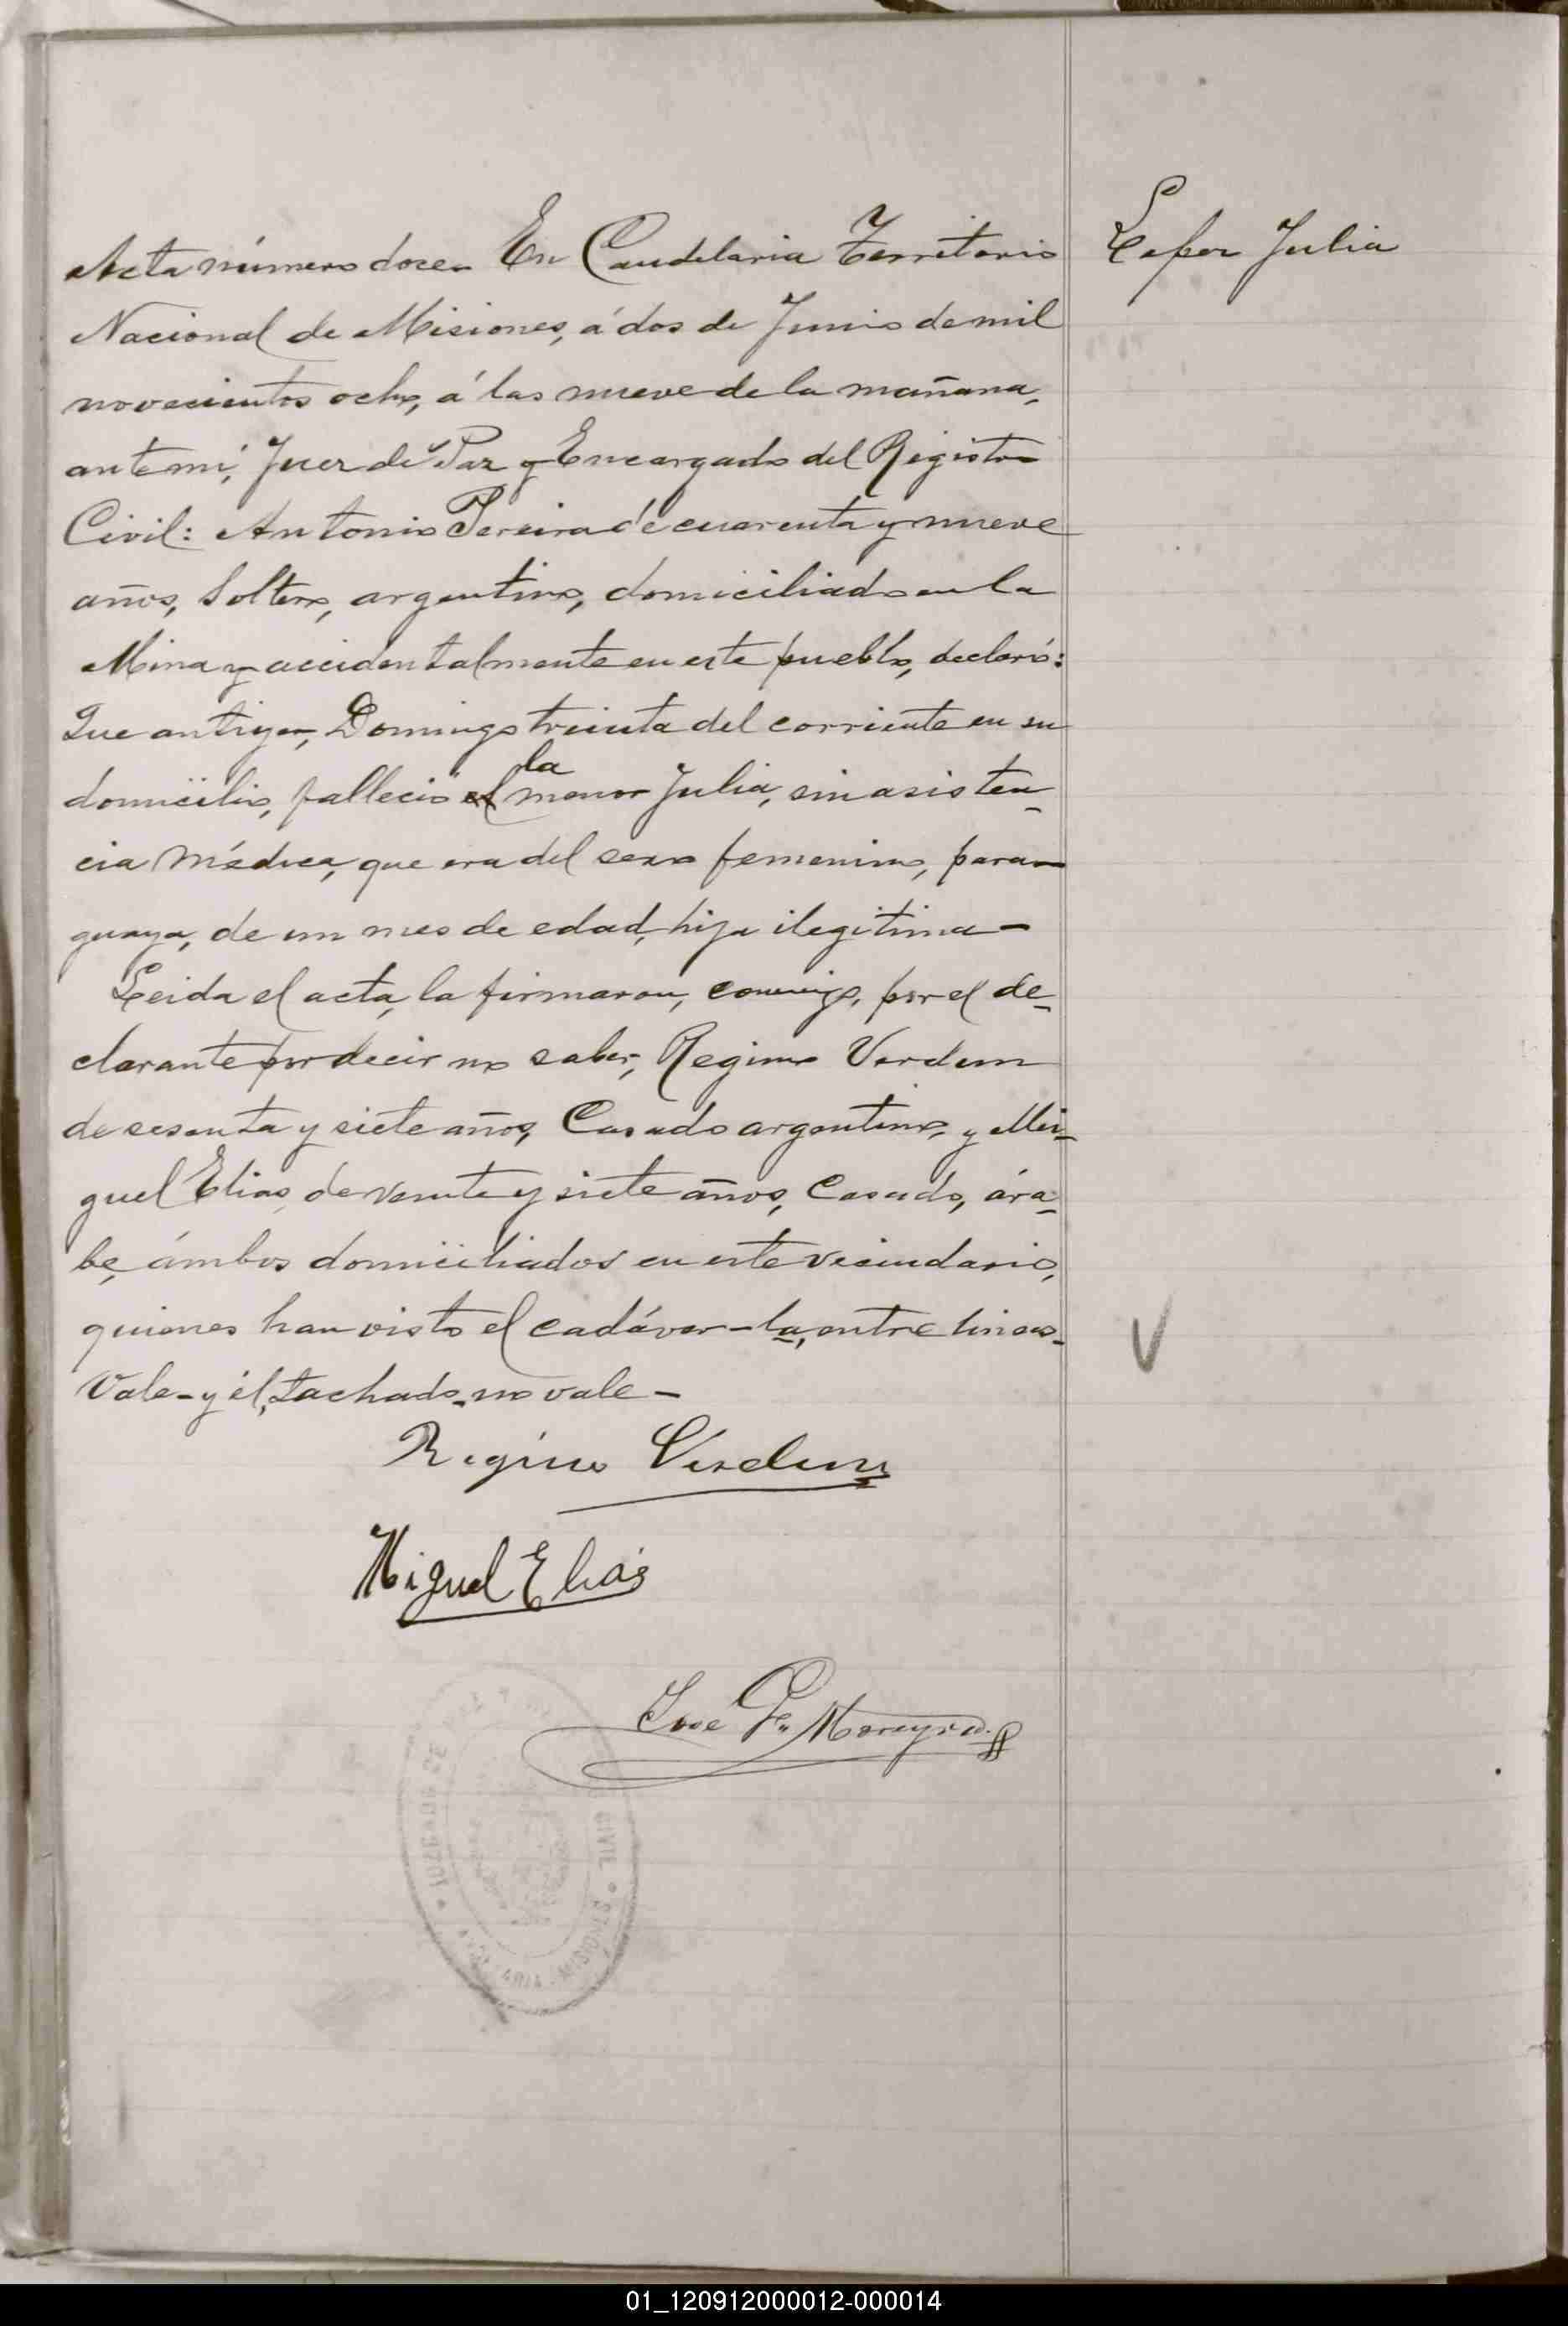 Acta número doce. En Candelaria Territorio
Nacional de Misiones, á dos de Junio de mil
novecientos ocho, á las nueve de la mañana,
ante mí, Juez de Paz y Encargado del Registro
Civil: Antonio Pereira de cuarenta y nueve
años, soltero, argentino, domiciliado en la
Mina y accidentalmente en este pueblo, declaró:
Que antiyer, Domingo treinta del corriente en su
domicilio, falleció el la menor Julia, sin asisten-
cia médica, que era del sexo femenino, para-
guaya, de un mes de edad, hija ilegitima-
Leida el acta, la firmaron, conmigo, por el de-
clarante por decir no saber, Regino Verdun
de sesenta y siete años, Casado argentino, y Mi-
guel Elias, de veinte y siete años, Casado, ára-
be, ámbos domiciliados en este vecindario,
quienes han visto el cadáver-la, entre lineas-
Vale-y él, tachado-no vale-
Regino Verdun
Miguel Elías
José F. Moreyra
Julia
JUZGADO DE PAZ
CIVIL
MISIONES
01_120912000012-000014